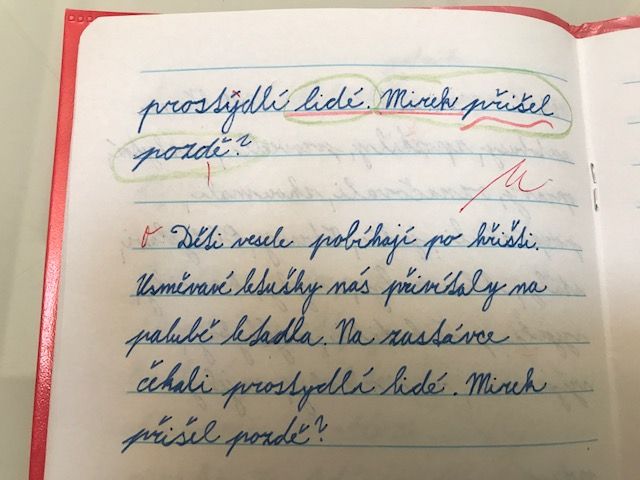 prostýdlí lidé. Mirek přišel
pozdě?
Děti vesele pobíhají po hřišti.
Usměvavé letušky nás přivítaly na
palubě letadla. Na zastávce
čekali prostydlí lidé. Mirek
přišel pozdě?